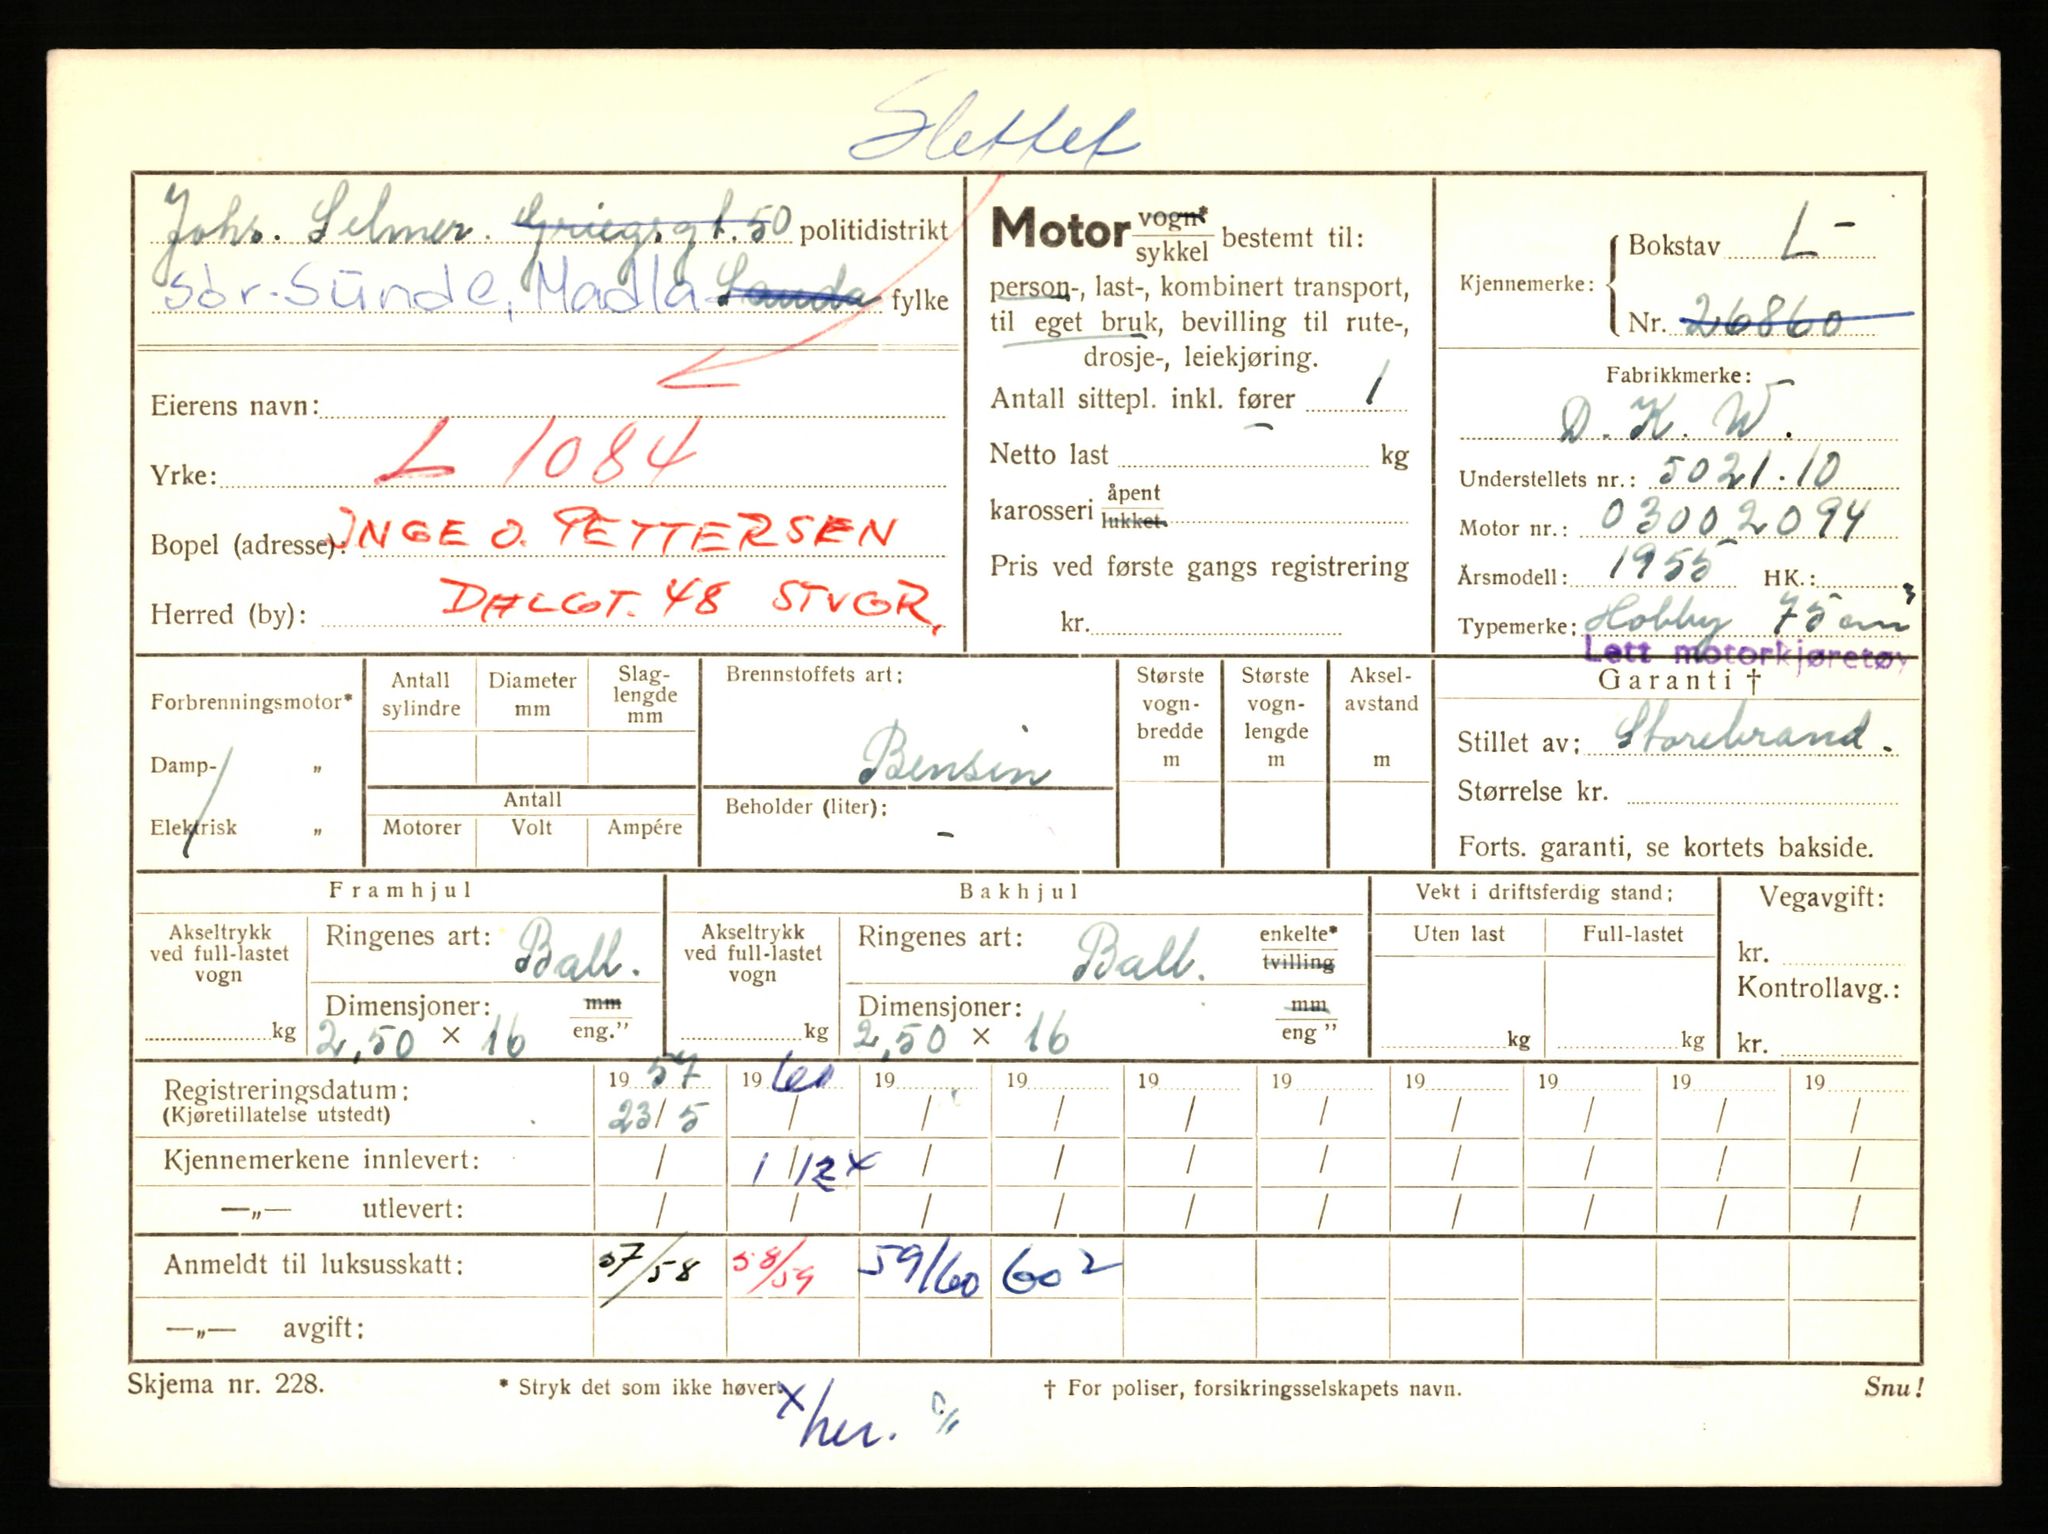 Slettet
Johs. Selmer Griegsgt. 50 politidistrikt
Sør-Sunde, Madla Sauda fylke
Eierens navn:
Yrke: L 1084
Bopel (adresse): INGE O. PETTERSEN
Herred (by): DALGT. 48 STVGR.
Motor vogn* sykkel bestemt til:
person-, last-, kombinert transport,
til eget bruk, bevilling til rute-,
drosje-, leiekjøring.
Antall sittepl. inkl. fører 1
Netto last - kg
karosseri åpent lukket
Pris ved første gangs registrering
kr.
Kjennemerke: Bokstav L-
Nr. 26860
Fabrikkmerke:
D. K. W.
Understellets nr.: 5021.10
Motor nr.: 03002094
Årsmodell: 1955 HK.:
Typemerke: Hobby 75 cm³
Lett motorkjøretøy
Forbrenningsmotor*
Damp- „
Elektrisk „
Antall sylindre
Diameter mm
Slag-lengde mm
Antall
Motorer Volt Ampére
Brennstoffets art:
Bensin
Beholder (liter):
-
Største vogn-bredde m
Største vogn-lengde m
Aksel-avstand m
Garanti †
Stillet av: Storebrand.
Størrelse kr.
Forts. garanti, se kortets bakside.
Framhjul
Akseltrykk ved full-lastet vogn
kg
Ringenes art: Ball.
Dimensjoner: mm eng.”
2,50 × 16
Bakhjul
Akseltrykk ved full-lastet vogn
kg
Ringenes art: Ball. enkelte* tvilling
Dimensjoner: mm eng ”
2,50 × 16
Vekt i driftsferdig stand:
Uten last Full-lastet
kg kg
Vegavgift:
kr.
Kontrollavg.:
kr.
Registreringsdatum: 19 57 19 60 19 19 19 19 19 19 19 19
(Kjøretillatelse utstedt) 23/5 / / / / / / / / /
Kjennemerkene innlevert: / 1/12 x / / / / / / / /
—„— utlevert: / / / / / / / / / /
Anmeldt til luksusskatt: 57/58 58/59 59/60 60 2
—„— avgift:
Skjema nr. 228. * Stryk det som ikke høver. † For poliser, forsikringsselskapets navn. Snu!
x her.